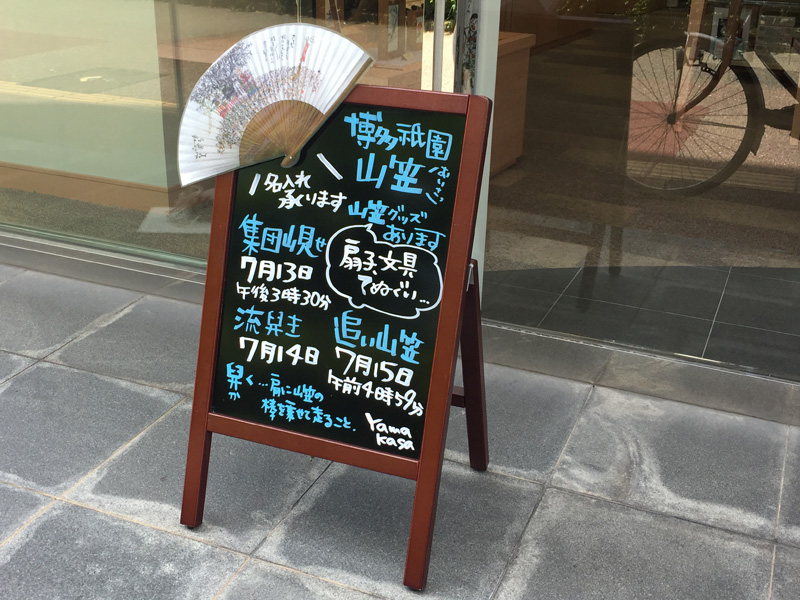 博多祇園
山笠
名入れ
承ります
山笠グッズ
あります
扇子、文具
てぬぐい…
集団山見せ
7月13日
午後3時30分
流舁き
7月14日
追い山笠
7月15日
午前4時59分
舁く…肩に山笠の
か
棒を乗せて走ること。
Yama
kasa